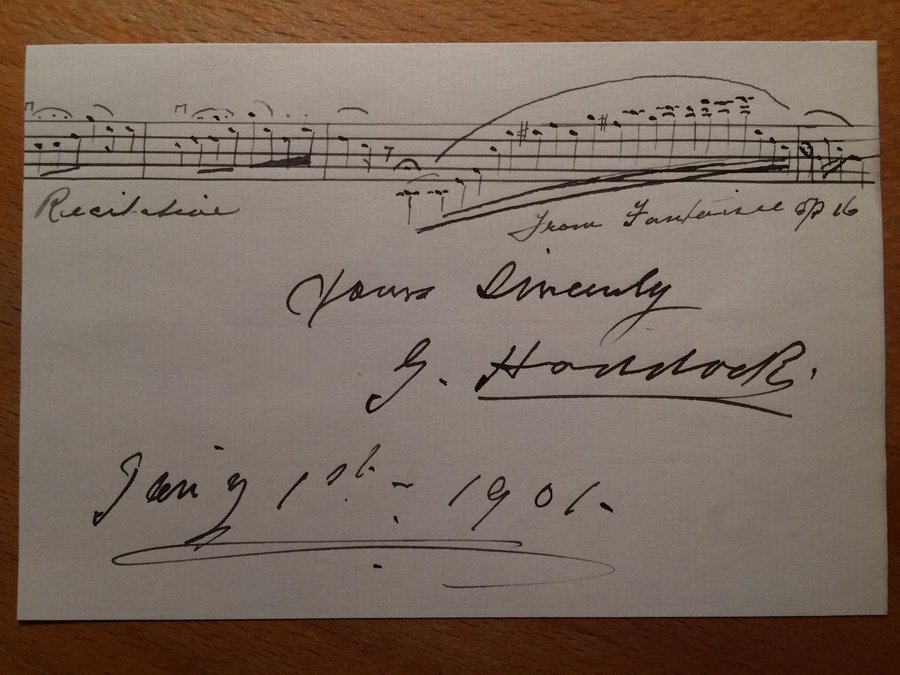 Recitative
From Fantaisie op 16
Yours Sincerely
G. Haddock.
Jan'y 1st - 1901.